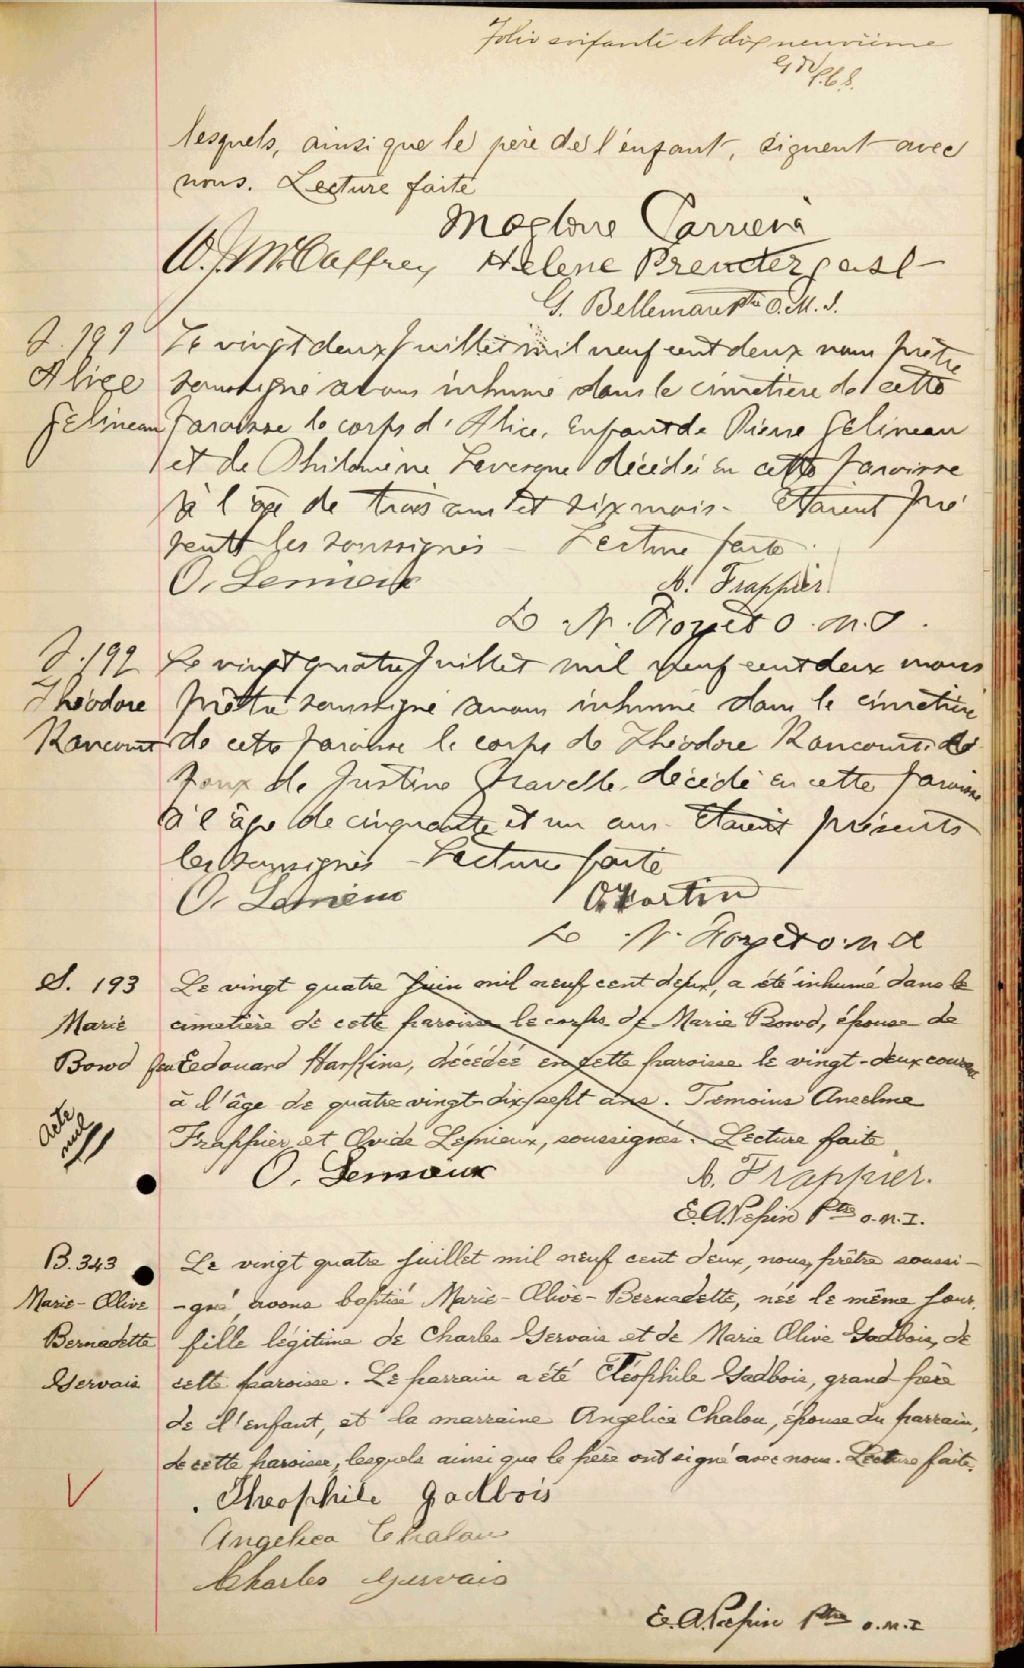 Folio soixante et dix neuvième
lesquels, ainsi que le père de l'enfant, signent avec
nous. Lecture faite
Maglone Carriera
W. J. McCaffrey Hélène Prendergast
G. Bellemare ptre O.M.I.
S. 191
Alice
Gelineau
Le vingt deux Juillet mil neuf cent deux nous prêtre
soussigné avons inhumé dans le cimetière de cette
paroisse le corps d'Alice, Enfant de Pierre Gelineau
et de Philomène Levesque décédée en cette paroisse
à l'âge de trois ans et six mois - Etaient pré
sents les soussignés - Lecture faite
O. Lemieux A. Frappier
L. N. Forget O.M.I.
S. 192
Théodore
Rancourt
Le vingt quatre Juillet mil neuf cent deux nous
prêtre soussigné avons inhumé dans le cimetière
de cette paroisse le corps de Théodore Rancourt, é
poux de Justine Gravelle, décédé en cette paroisse
à l'âge de cinquante et un ans - Etaient présents
les soussignés - Lecture faite
O. Lemieux O Martin
L. N. Forget O.M.I.
S. 193
Marie
Bowd
Acte
nul
Le vingt quatre Juin mil neuf cent deux, a été inhumé dans le
cimetière de cette paroisse le corps de Marie Bowd, épouse de
feu Edouard Harkins, décédée en cette paroisse le vingt-deux courant
à l'âge de quatre vingt-dix sept ans. Temoins Anselme
Frappier et Ovide Lemieux, soussignés. Lecture faite
O. Lemieux A. Frappier.
E. A. Pepin Ptre O.M.I.
B. 343
Marie-Olive
Bernadette
Gervais
Le vingt quatre juillet mil neuf cent deux, nous, prêtre soussi-
-gné avons baptisé Marie-Olive-Bernadette, née le même jour,
fille légitime de Charles Gervais et de Marie Olive Gadbois, de
cette paroisse. Le parrain a été Téophile Gadbois, grand père
de l'enfant, et la marraine Angelica Chalou, épouse du parrain,
de cette paroisse, lesquels ainsi que le père ont signé avec nous. Lecture faite.
Theophile Gadbois
Angelica Chalou
Charles Gervais
E. A. Pepin Ptre O.M.I.